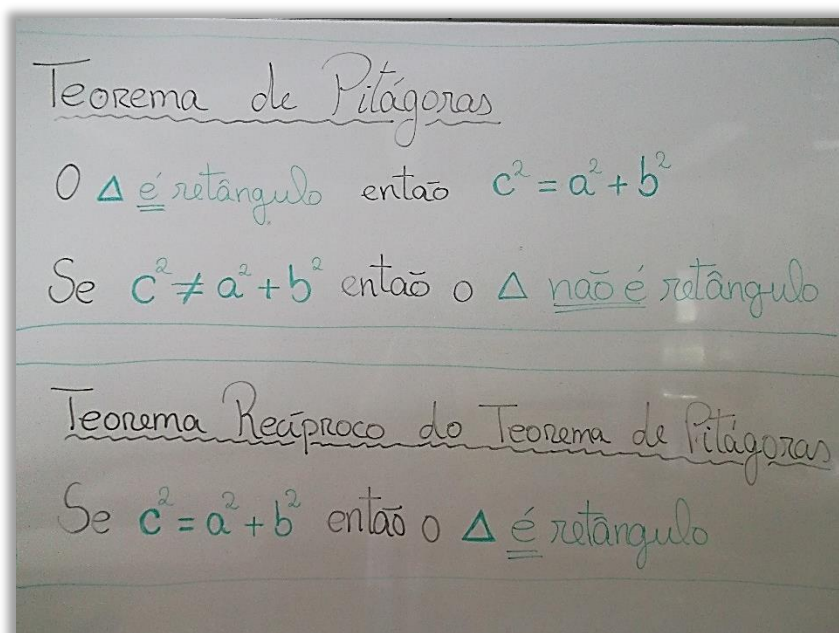 Teorema de Pitágoras
O △ é retângulo então c² = a² + b²
Se c² ≠ a² + b² então o △ não é retângulo
Teorema Recíproco do Teorema de Pitágoras
Se c² = a² + b² então o △ é retângulo